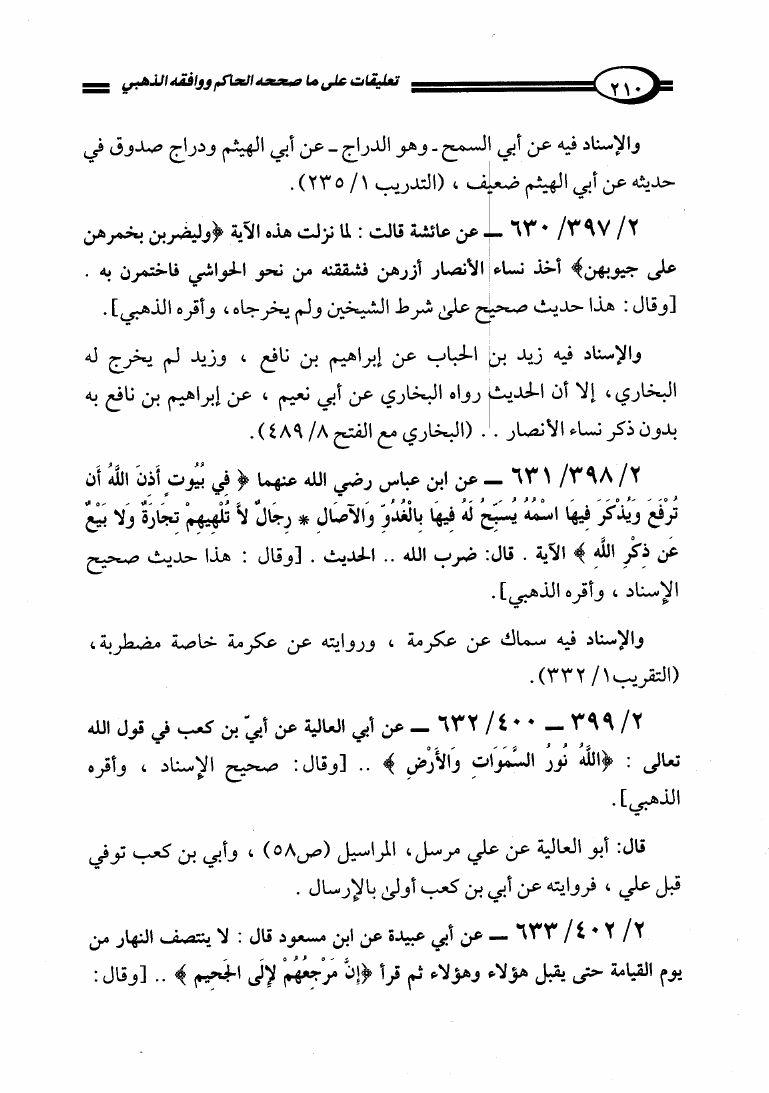 ٢١٠ تعليقات على ما صححه الحاكم ووافقه الذهبي
والإسناد فيه عن أبي السمح ـ وهو الدراج ـ عن أبي الهيثم ودراج صدوق في
حديثه عن أبي الهيثم ضعيف ، (التدريب ١/ ٢٣٥).
٢/ ٣٩٧/ ٦٣٠ ــ عن عائشة قالت : لما نزلت هذه الآية ﴿وليضربن بخمرهن
على جيوبهن﴾ أخذ نساء الأنصار أزرهن فشققنه من نحو الحواشي فاختمرن به .
[وقال : هذا حديث صحيح على شرط الشيخين ولم يخرجاه، وأقره الذهبي].
والإسناد فيه زيد بن الحباب عن إبراهيم بن نافع ، وزيد لم يخرج له
البخاري، إلا أن الحديث رواه البخاري عن أبي نعيم ، عن إبراهيم بن نافع به
بدون ذكر نساء الأنصار .. (البخاري مع الفتح ٨/ ٤٨٩).
٢/ ٣٩٨/ ٦٣١ ــ عن ابن عباس رضي الله عنهما ﴿ فِي بُيُوتٍ أَذِنَ اللَّهُ أَن
تُرْفَعَ وَيُذْكَرَ فِيهَا اسْمُهُ يُسَبِّحُ لَهُ فِيهَا بِالْغُدُوِّ وَالآصَالِ * رِجَالٌ لاَّ تُلْهِيهِمْ تِجَارَةٌ وَلا بَيْعٌ
عَن ذِكْرِ اللَّهِ ﴾ الآية . قال: ضرب الله .. الحديث . [وقال : هذا حديث صحيح
الإسناد ، وأقره الذهبي].
والإسناد فيه سماك عن عكرمة ، وروايته عن عكرمة خاصة مضطربة،
(التقريب١/ ٣٣٢).
٢/ ٣٩٩ ــ ٤٠٠/ ٦٣٢ ــ عن أبي العالية عن أبيّ بن كعب في قول الله
تعالى : ﴿اللَّهُ نُورُ السَّمَوَاتِ وَالأَرْضِ ﴾ .. [وقال: صحيح الإسناد ، وأقره
الذهبي].
قال: أبو العالية عن علي مرسل، المراسيل (ص٥٨) ، وأبي بن كعب توفي
قبل علي ، فروايته عن أبي بن كعب أولى بالإرسال .
٢/ ٤٠٢/ ٦٣٣ ــ عن أبي عبيدة عن ابن مسعود قال : لا ينتصف النهار من
يوم القيامة حتى يقبل هؤلاء وهؤلاء ثم قرأ ﴿إِنَّ مَرْجِعَهُمْ لإِلَى الْجَحِيمِ ﴾ .. [وقال: